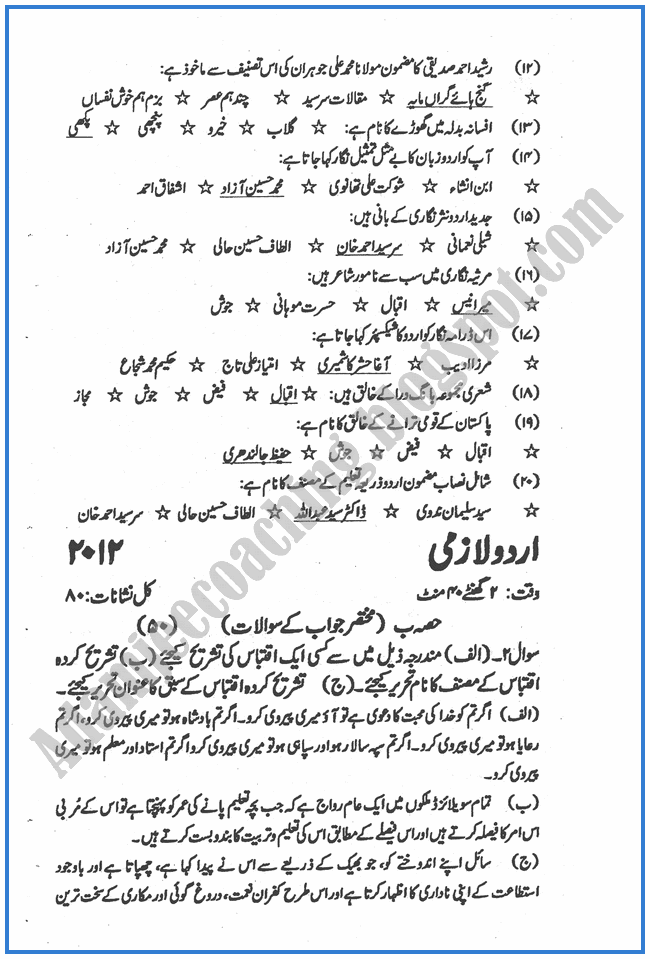 (۱۲) رشید احمد صدیقی کا مضمون مولانا محمد علی جوہر ان کی اس تصنیف سے ماخوذ ہے:
☆ گنج ہائے گراں مایہ ☆ مقالات سرسید ☆ چند ہم عصر ☆ بزم ہم خوش نفساں
(۱۳) افسانہ بدلہ میں گھوڑے کا نام ہے: ☆ گلاب ☆ خیرو ☆ پنچھی ☆ پکھی
(۱۴) آپ کو اردو زبان کا بے مثل تمثیل نگار کہا جاتا ہے:
☆ ابن انشاء ☆ شوکت علی تھانوی ☆ محمد حسین آزاد ☆ اشفاق احمد
(۱۵) جدید اردو نثر نگاری کے بانی ہیں:
☆ شبلی نعمانی ☆ سرسید احمد خان ☆ الطاف حسین حالی ☆ محمد حسین آزاد
(۱۶) مرثیہ نگاری میں سب سے نامور شاعر ہیں:
☆ میر انیس ☆ اقبال ☆ حسرت موہانی ☆ جوش
(۱۷) اس ڈرامہ نگار کو اردو کا شیکسپئر کہا جاتا ہے:
☆ مرزا ادیب ☆ آغا حشر کاشمیری ☆ امتیاز علی تاج ☆ حکیم محمد شجاع
(۱۸) شعری مجموعہ بانگ درا کے خالق ہیں: ☆ اقبال ☆ فیض ☆ جوش ☆ مجاز
(۱۹) پاکستان کے قومی ترانے کے خالق کا نام ہے:
☆ اقبال ☆ فیض ☆ جوش ☆ حفیظ جالندھری
(۲۰) شامل نصاب مضمون اردو ذریعہ تعلیم کے مصنف کا نام ہے:
☆ سید سلیمان ندوی ☆ ڈاکٹر سید عبداللہ ☆ الطاف حسین حالی ☆ سرسید احمد خان
اردو لازمی ۲۰۱۲
وقت: ۲ گھنٹے ۴۰ منٹ کل نشانات: ۸۰
حصہ ب (مختصر جواب کے سوالات) (۵۰)
سوال ۲۔ (الف) مندرجہ ذیل میں سے کسی ایک اقتباس کی تشریح کیجئے (ب) تشریح کردہ
اقتباس کے مصنف کا نام تحریر کیجئے۔ (ج) تشریح کردہ اقتباس کے سبق کا عنوان تحریر کیجئے۔
(الف) اگر تم کو خدا کی محبت کا دعوی ہے تو آؤ میری پیروی کرو۔ اگر تم بادشاہ ہو تو میری پیروی کرو، اگر تم
رعایا ہو تو میری پیروی کرو۔ اگر تم سپہ سالار ہو اور سپاہی ہو تو میری پیروی کرو اگر تم استاد اور معلم ہو تو میری
پیروی کرو۔
(ب) تمام سویلائزڈ ملکوں میں ایک عام رواج ہے کہ جب بچہ تعلیم پانے کی عمر کو پہنچتا ہے تو اس کے مُربی
اس امر کا فیصلہ کرتے ہیں اور اس فیصلے کے مطابق اس کی تعلیم و تربیت کا بندوبست کرتے ہیں۔
(ج) سائل اپنے اندوختے کو، جو بھیک کے ذریعے سے اس نے پیدا کہا ہے، چھپاتا ہے اور باوجود
استطاعت کے اپنی ناداری کا اظہار کرتا ہے اور اس طرح کفران نعمت، دروغ گوئی اور مکاری کے سخت ترین
Adamjeecoaching.blogspot.com